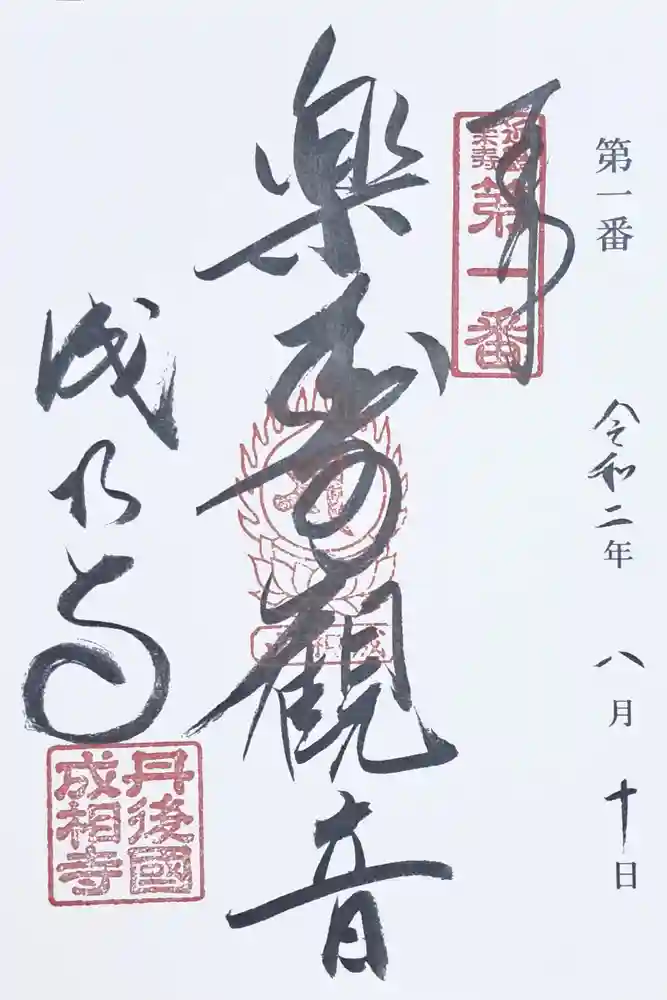 第一番 令和二年 八月十日
奉
近畿
楽寿
第一番
楽寿観音
成相寺
丹後國
成相寺